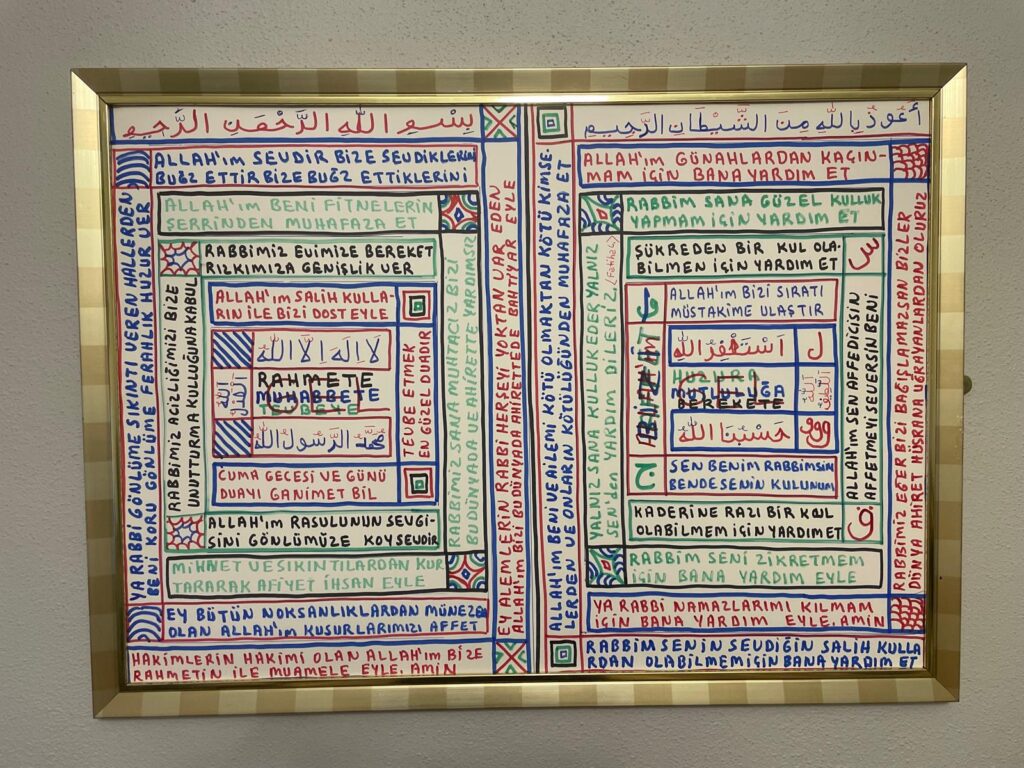 بِسْمِ اللَّهِ الرَّحْمَنِ الرَّحِيمِ
ALLAH'ım SEVDİR BİZE SEVDİKLERİNİ
BUĞZ ETTİR BİZE BUĞZ ETTİKLERİNİ
ALLAH'ım BENİ FİTNELERİN
ŞERRİNDEN MUHAFAZA ET
RABBİMİZ EVİMİZE BEREKET
RIZKIMIZA GENİŞLİK VER
ALLAH'ım SALİH KULLA-
RIN İLE BİZİ DOST EYLE
لا اله الا الله
RAHMETE
MUHABBETE
محمد الرسول الله
CUMA GECESİ VE GÜNÜ
DUAYI GANİMET BİL
ALLAH'ım RASULUNUN SEVGİ-
SİNİ GÖNLÜMÜZE KOY SEVDİR
MİHNET VE SIKINTILARDAN KUR
TARARAK AFİYET İHSAN EYLE
EY BÜTÜN NOKSANLIKLARDAN MÜNEZEH
OLAN ALLAH'ım KUSURLARIMIZI AFFET
HAKİMLERİN HAKİMİ OLAN ALLAH'ım BİZE
RAHMETİN İLE MUAMELE EYLE. AMİN
YA RABBİ GÖVLÜME SIKINTI VEREN HALLERDEN
BENİ KORU GÖNLÜME FERAHLIK HUZUR VER
RABBİMİZ ACİZLİĞİMİZİ BİZE
UNUTTURMA KULLUĞUNA KABUL
TEVBE ETMEK
EN GÜZEL DUADIR
RABBİMİZ SANA MUHTACIZ BİZİ
BU DÜNYADA VE AHİRETTE YARDIMSIZ
EY ALEMLERİN RABBİ HERŞEYİ YOKTAN VAR EDEN
ALLAH'ım BİZİ BU DÜNYADA AHİRETTEDE BAHTİYAR EYLE
أعوذ بالله من الشيطان الرجيم
ALLAH'ım GÜNAHLARDAN KAÇIN-
MAM İÇİN BANA YARDIM ET
RABBİM SANA GÜZEL KULLUK
YAPMAM İÇİN YARDIM ET
ŞÜKREDEN BİR KUL OLA-
BİLMEN İÇİN YARDIM ET
س
ALLAH'ım BİZİ SIRATI
MÜSTAKİME ULAŞTIR
استغفر الله
ل
HUZURA
MUTLULUĞA
BEREKETE
حسبنا الله
SEN BENİM RABBİMSİN
BENDE SENİN KULUNUM
ج
KADERİNE RAZI BİR KUL
OLABİLMEM İÇİN YARDIM ET
ق
RABBİM SENİ ZİKRETMEM
İÇİN BANA YARDIM EYLE
YA RABBİ NAMAZLARIMI KILMAM
İÇİN BANA YARDIM EYLE. AMİN
RABBİM SENİN SEVDİĞİN SALİH KULLA
RDAN OLABİLMEM İÇİN BANA YARDIM ET
ALLAH'ım BENİ VE AİLEMİ KÖTÜ OLMAKTAN KÖTÜ KİMSE-
LERDEN VE ONLARIN KÖTÜLÜĞÜNDEN MUHAFAZA ET
YALNIZ SANA KULLUK EDER YALNIZ
SEN'den YARDIM DİLERİZ. (Fatiha 5)
ALLAH'ım SEN AFFEDİCİSİN
AFFETMEYİ SEVERSİN BENİ
RABBİMİZ EĞER BİZİ BAĞIŞLAMAZSAN BİZLER
DÜNYA AHİRET HÜSRANA UĞRAYANLARDAN OLURUZ